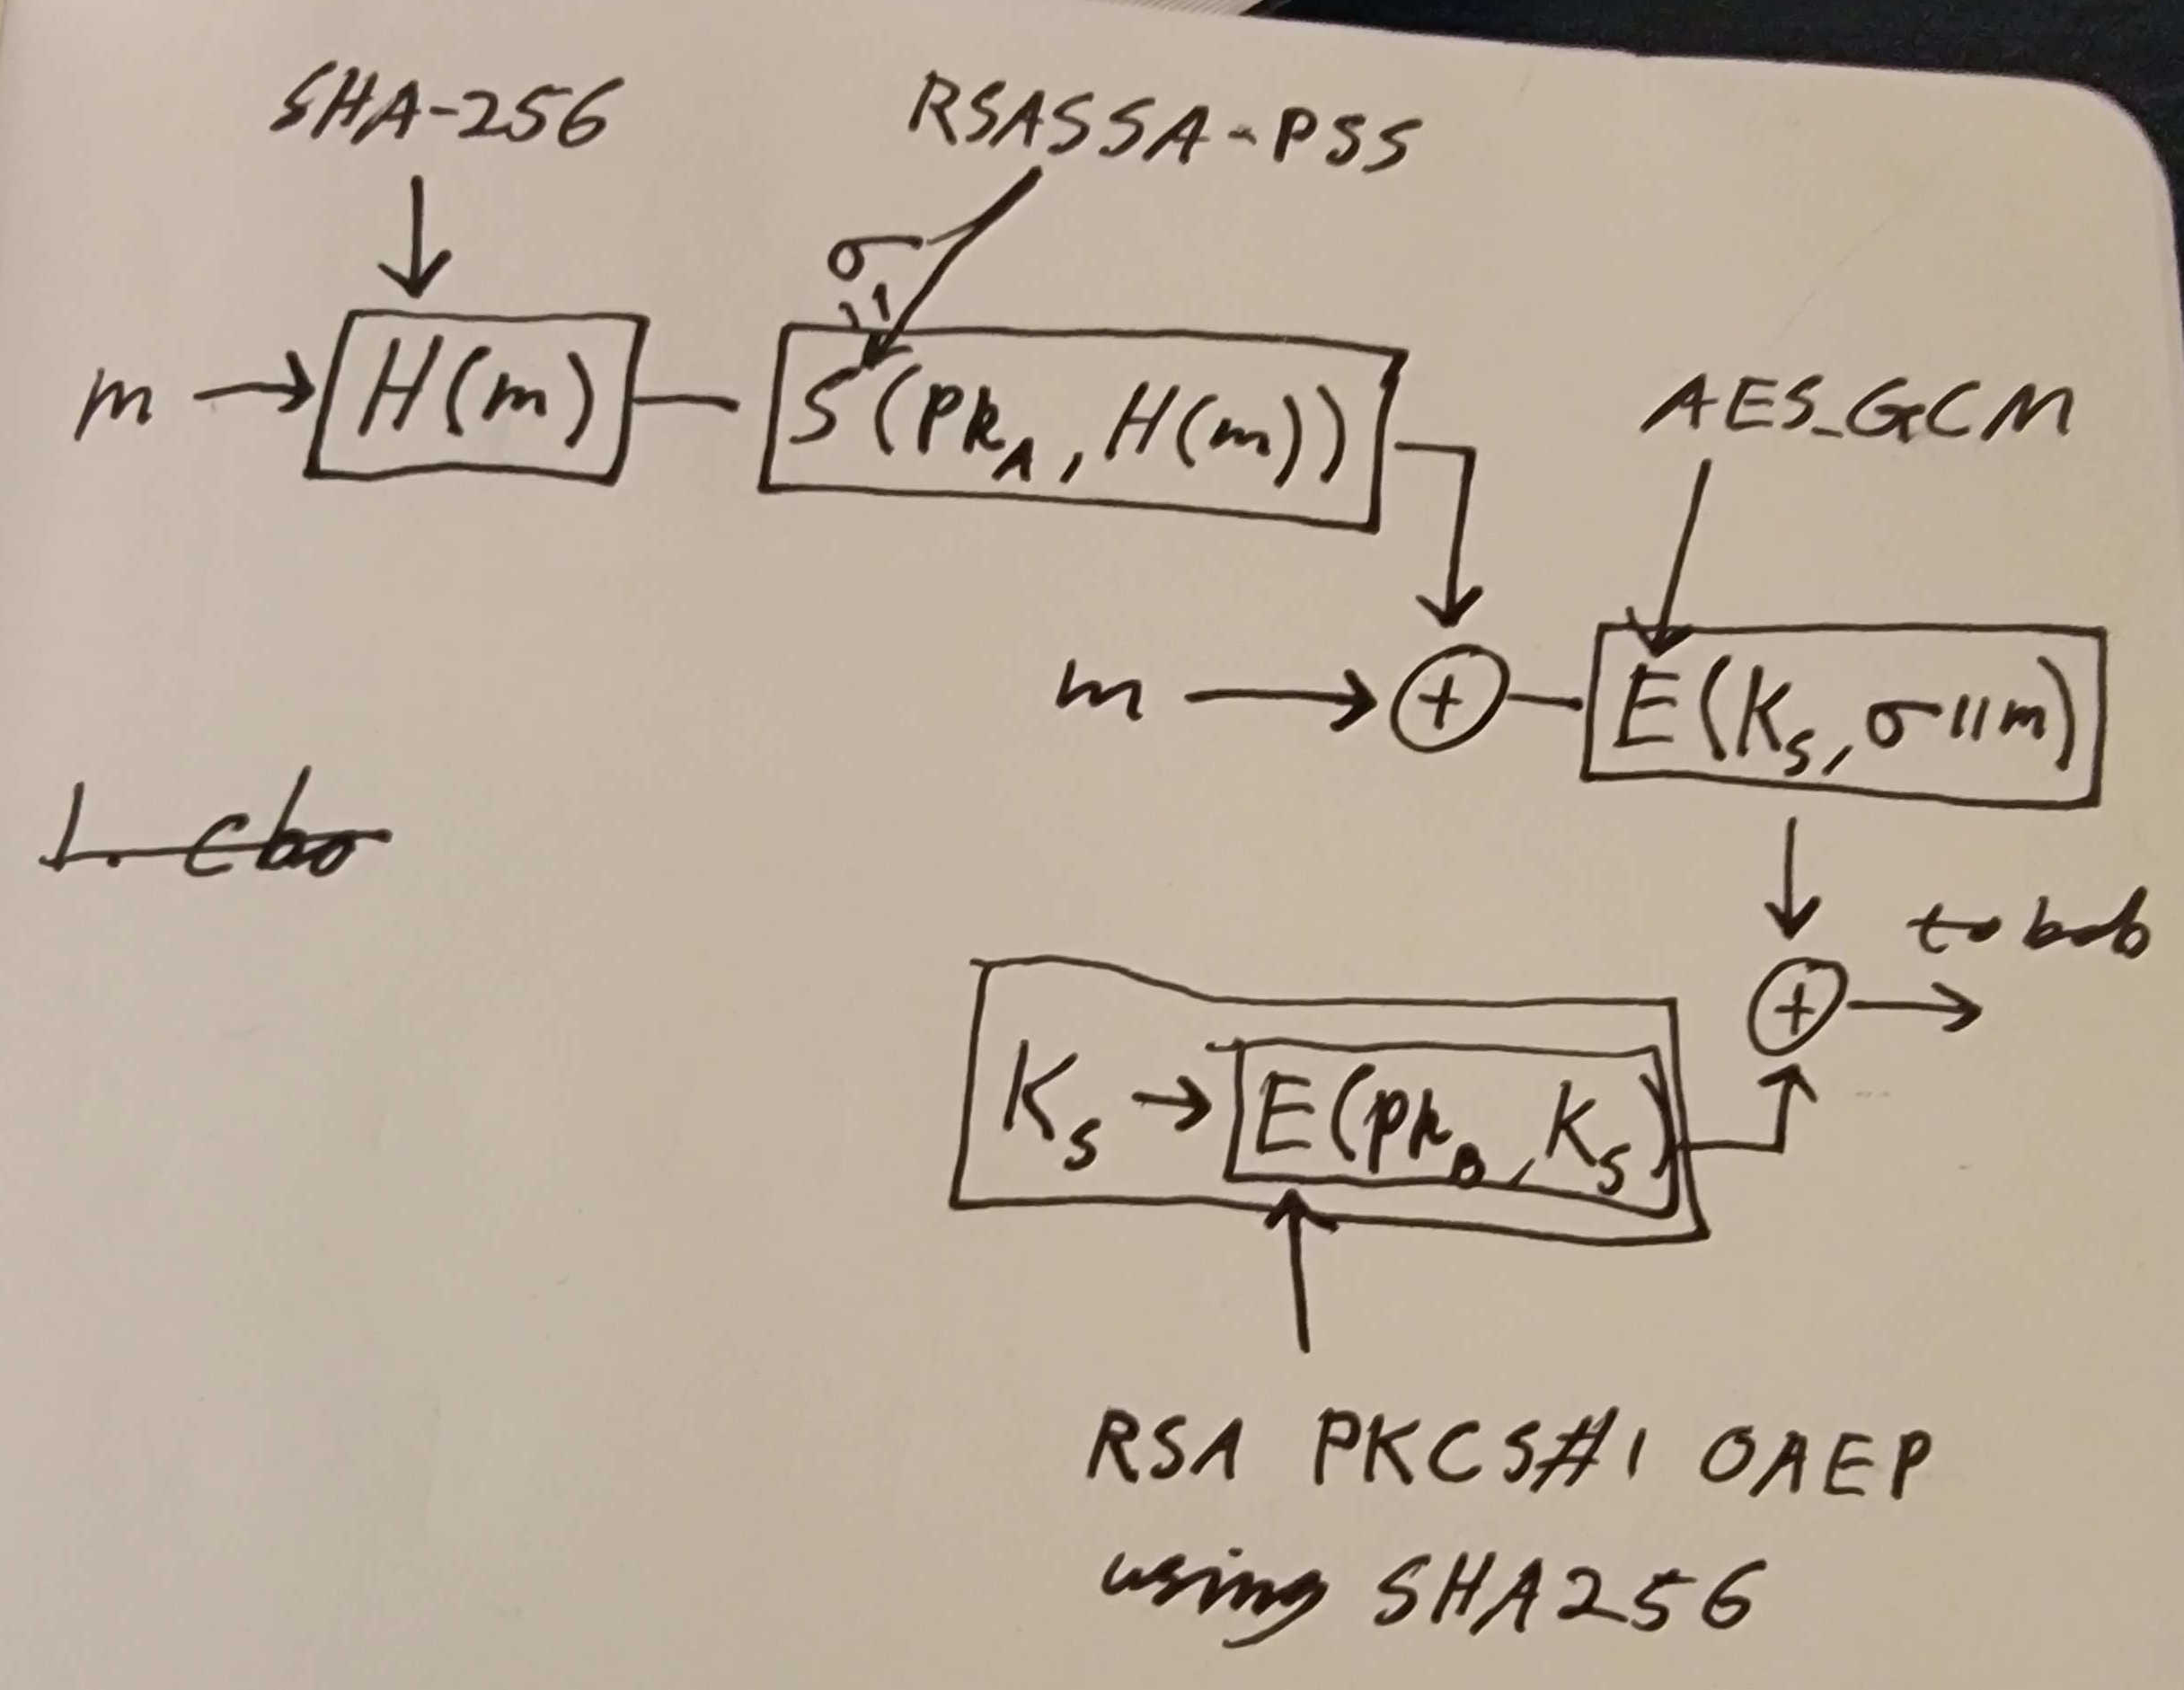 SHA-256
RSASSA-PSS
σ
m → H(m)
S(pk_A, H(m))
AES_GCM
m → ⊕
E(K_S, σ||m)
to bob
⊕ →
K_S → E(pk_B, K_S)
RSA PKCS#1 OAEP
using SHA256